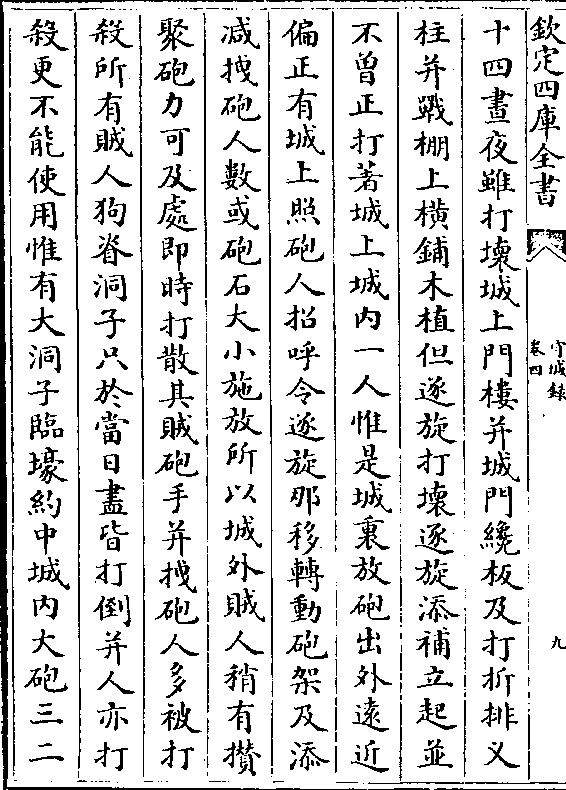 欽定四庫全書
守城録
卷四
九
十四晝夜雖打壞城上門樓并城門纔板及打折排乂
柱并戰棚上橫鋪木植但逐旋打壞逐旋添補立起並
不曽正打著城上城内一人惟是城裏放砲出外逺近
偏正有城上照砲人招呼令逐旋那移轉動砲架及添
减拽砲人數或砲石大小施放所以城外賊人稍有攅
聚砲力可及處即時打散其賊砲手并拽砲人多被打
殺所有賊人狗脊洞子只於當日盡皆打倒并人亦打
殺更不能使用惟有大洞子臨壕約中城内大砲三二